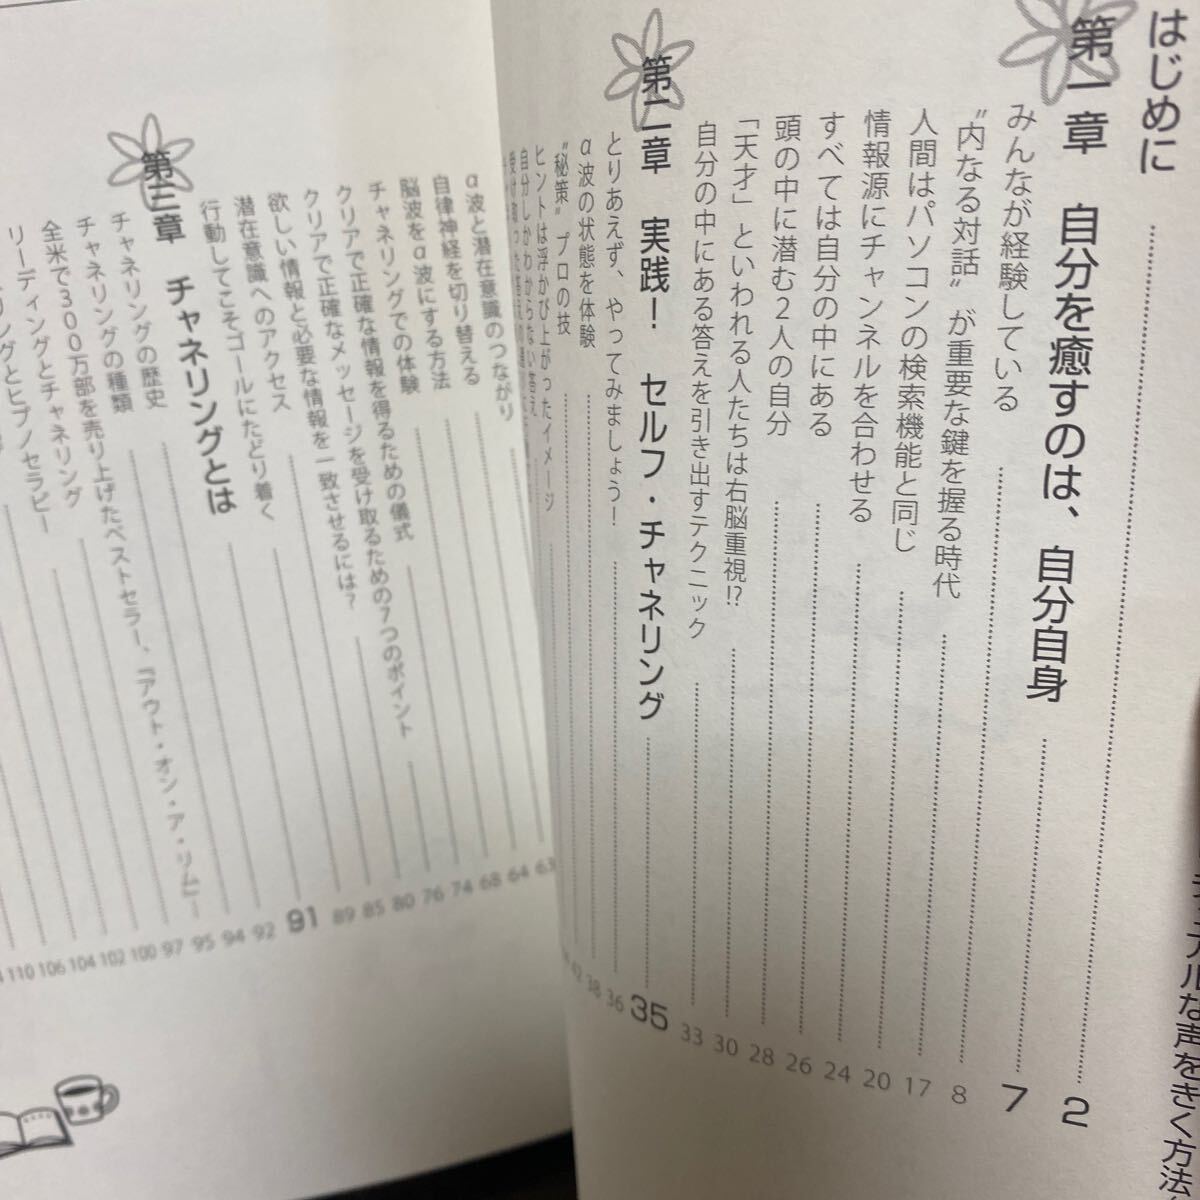 はじめに 2
第一章 自分を癒すのは、自分自身 7
みんなが経験している 8
〝内なる対話〟が重要な鍵を握る時代 17
人間はパソコンの検索機能と同じ 20
情報源にチャンネルを合わせる 24
すべては自分の中にある 26
頭の中に潜む2人の自分 28
「天才」といわれる人たちは右脳重視!? 30
自分の中にある答えを引き出すテクニック 33
第二章 実践! セルフ・チャネリング 35
とりあえず、やってみましょう! 36
α波の状態を体験 38
〝秘策〟プロの技 42
ヒントは浮かび上がったイメージ
自分しかわからない答え
63
64
α波と潜在意識のつながり 68
自律神経を切り替える 74
脳波をα波にする方法 76
チャネリングでの体験 80
クリアで正確な情報を得るための儀式 85
クリアで正確なメッセージを受け取るための7つのポイント 89
欲しい情報と必要な情報を一致させるには?
潜在意識へのアクセス
行動してこそゴールにたどり着く
第三章 チャネリングとは 91
チャネリングの歴史
チャネリングの種類
全米で300万部を売り上げたベストセラー、『アウト・オン・ア・リム』
リーディングとチャネリング
リングとヒプノセラピー
92
94
95
97
100
102
104
106
110
な声をきく方法